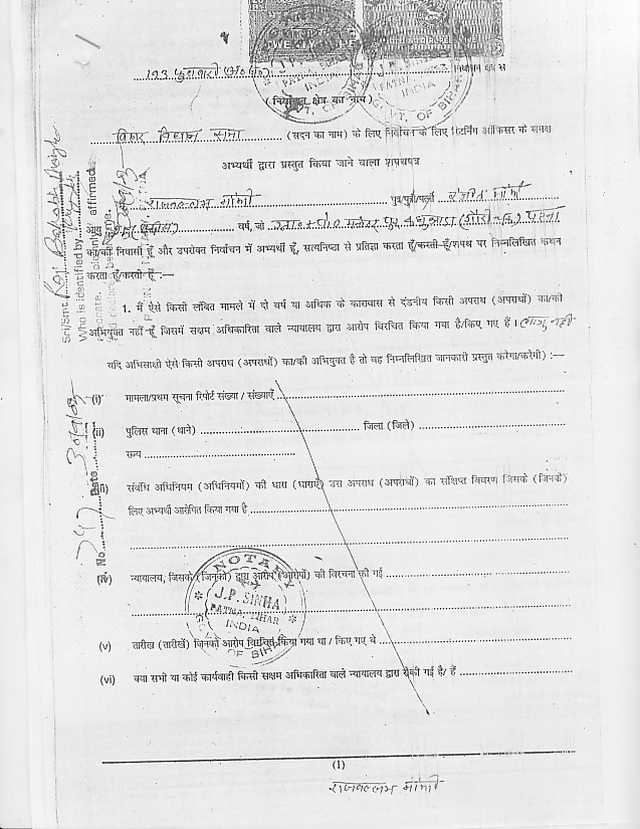 123 फुलवारी (अ० जा०) निर्वाचन क्षेत्र से
(निर्वाचन क्षेत्र का नाम)
बिहार विधान सभा (सदन का नाम) के लिए निर्वाचन के लिए रिटर्निंग ऑफिसर के समक्ष
अभ्यर्थी द्वारा प्रस्तुत किया जाने वाला शपथपत्र
राजबल्लभ मांझी पुत्र/पुत्री/पत्नी मांझी
आयु वर्ष, जो पटना
का/की निवासी हूँ और उपरोक्त निर्वाचन में अभ्यर्थी हूँ, सत्यनिष्ठा से प्रतिज्ञा करता हूँ/करती हूँ/शपथ पर निम्नलिखित कथन
करता हूँ/करती हूँ :—
1. मैं ऐसे किसी लंबित मामले में दो वर्ष या अधिक के कारावास से दंडनीय किसी अपराध (अपराधों) का/की
अभियुक्त नहीं हूँ जिसमें सक्षम अधिकारिता वाले न्यायालय द्वारा आरोप विरचित किया गया है/किए गए हैं । लागू नहीं
यदि अभिसाक्षी ऐसे किसी अपराध (अपराधों) का/की अभियुक्त है तो वह निम्नलिखित जानकारी प्रस्तुत करेगा/करेगी) :—
(i) मामला/प्रथम सूचना रिपोर्ट संख्या / संख्याएँ
(ii) पुलिस थाना (थाने) जिला (जिले)
राज्य
(iii) संबंधि अधिनियम (अधिनियमों) की धारा (धाराएँ) उस अपराध (अपराधों) का संक्षिप्त विवरण जिसके (जिनके)
लिए अभ्यर्थी आरोपित किया गया है
(iv) न्यायालय, जिसके (जिनकी) द्वारा आरोप (आरोपों) की विरचना की गई
(v) तारीख (तारीखें) जिनको आरोप विरचित किया गया था / किए गए थे
(vi) क्या सभी या कोई कार्यवाही किसी सक्षम अधिकारिता वाले न्यायालय द्वारा रोकी गई है/ हैं
(1)
राजबल्लभ मांझी
NOTARY
J.P. SINHA
PATNA, BIHAR
INDIA
OF BIHAR
Sri/Smt. Raj Ballabh Manjhi
Who is identified by
solemnly affirmed
No. 247 Date 30/9/05